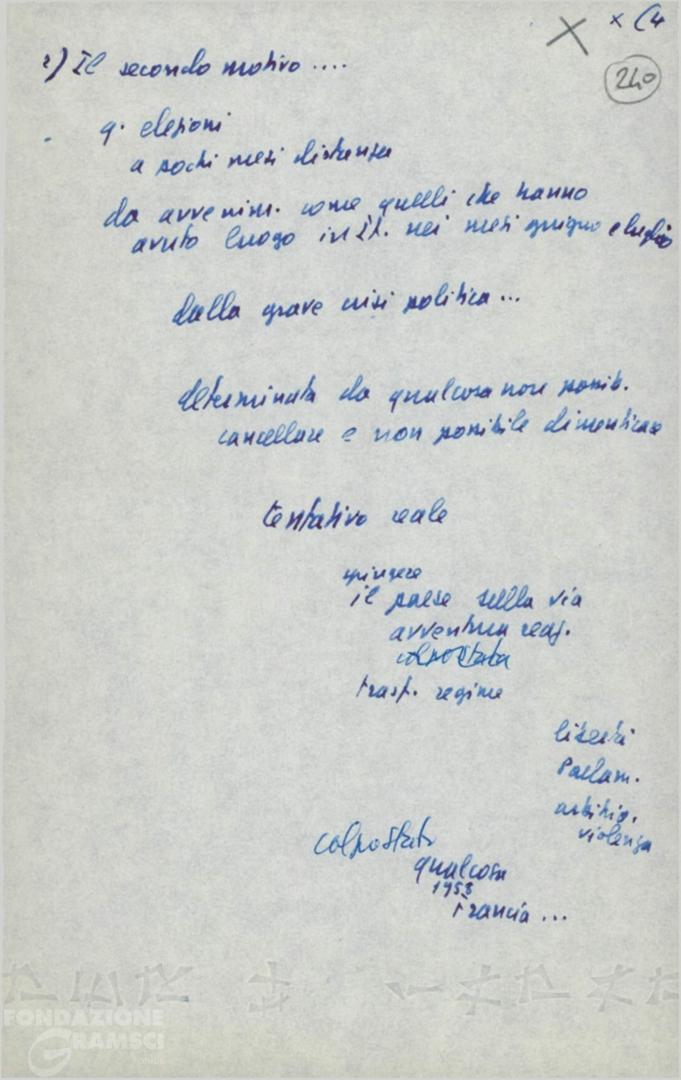 x (4
240
2) Il secondo motivo ....
q. elezioni
a pochi mesi distanza
da avvenim. come quelli che hanno
avuto luogo in It. nei mesi giugno e luglio
dalla grave crisi politica ...
determinata da qualcosa non possib.
cancellare e non possibile dimenticare
tentativo reale
spingere
il paese sulla via
avventura reaz.
colpo Stato
trasf. regime
libertà
Parlam.
arbitrio.
violenza
colpo Stato
qualcosa
1958
Francia ...
FONDAZIONE
GRAMSCI